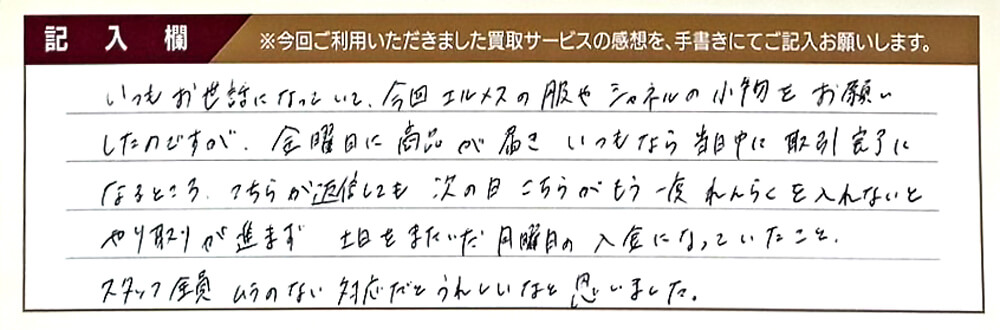 記入欄
※今回ご利用いただきました買取サービスの感想を、手書きにてご記入お願いします。
いつもお世話になっていて、今回エルメスの服やシャネルの小物をお願い
したのですが、金曜日に商品が届き いつもなら当日中に取引完了に
なるところ、こちらが返信しても 次の日こちらがもう一度れんらくを入れないと
やり取りが進まず 土日をまたいだ月曜日の入金になっていたこと、
スタッフ全員ムラのない対応だとうれしいなと思いました。